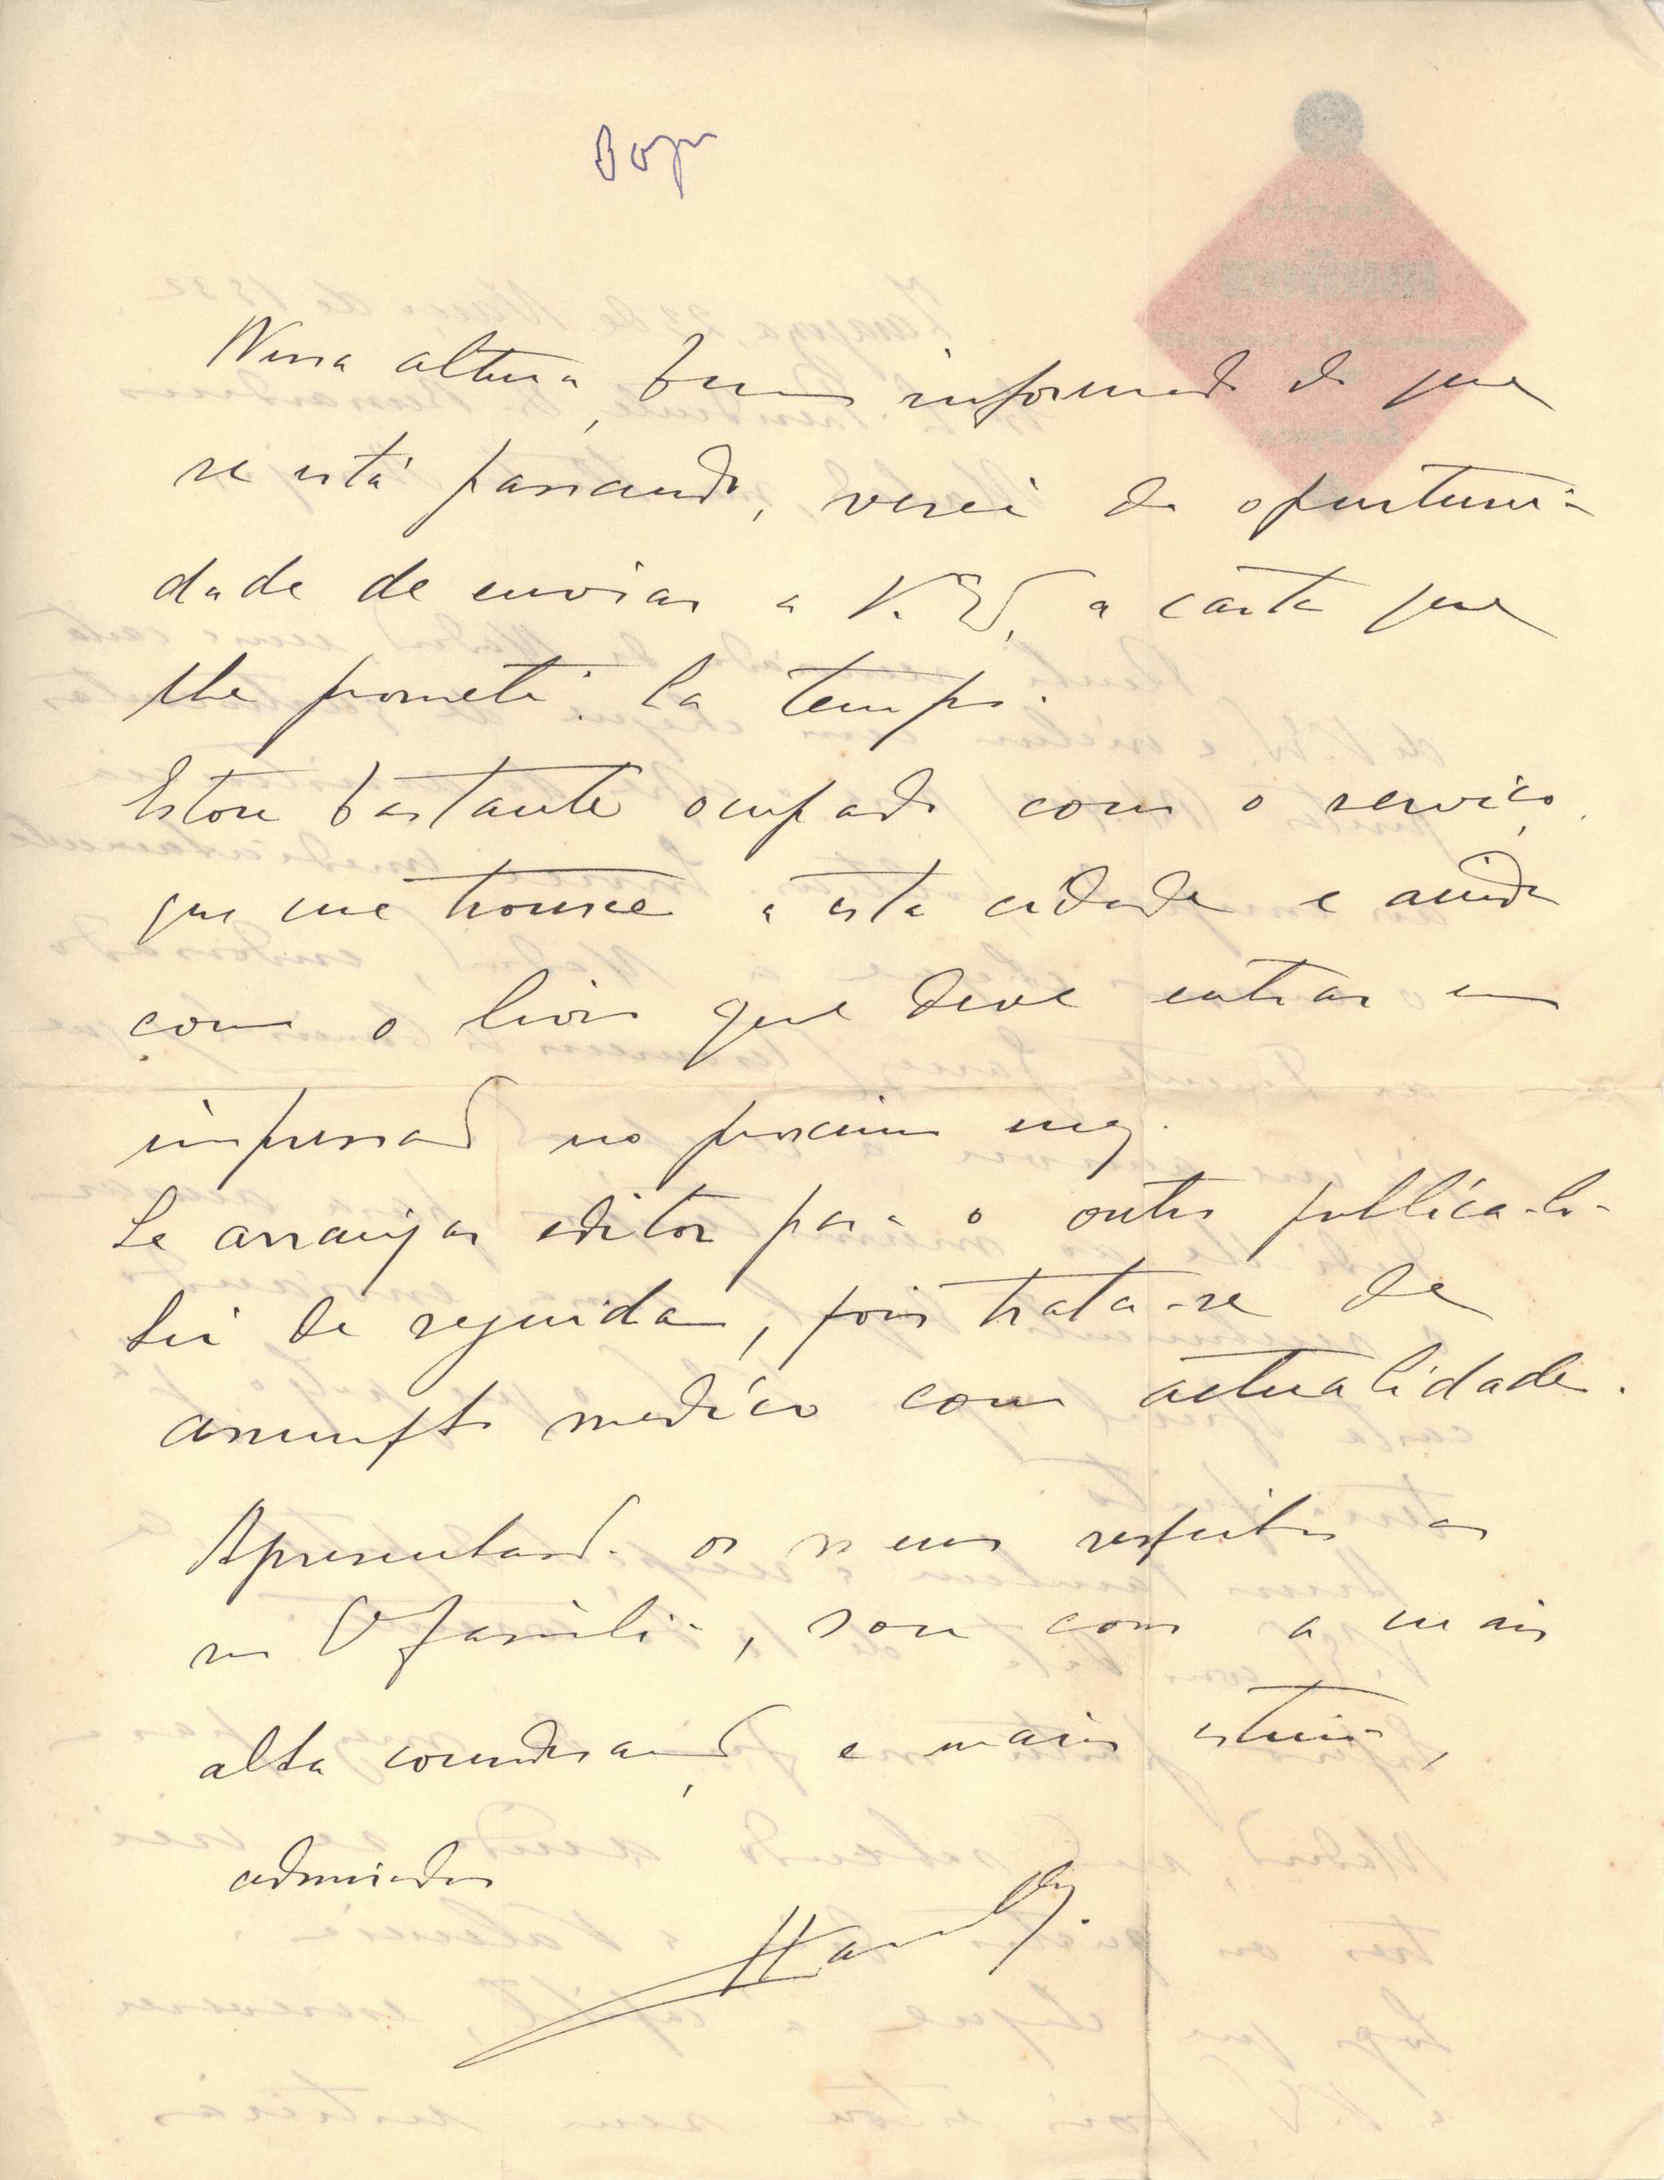 Nessa altura, bem informado do que
se está passando, verei da oportuni-
dade de enviar a V. Ex. a carta que
lhe prometi ha tempo.
Estou bastante ocupado com o serviço
que me trouxe a esta cidade e ainda
com o livro que deve entrar em
impressão no proximo mez.
Se arranjar editor para o outro publica-lo-
hei de seguida, pois trata-se de
assumpto medico com actualidade.
Apresentando os meus respeitos a
familia, sou com a mais
alta consideração e maior estima,
admirador